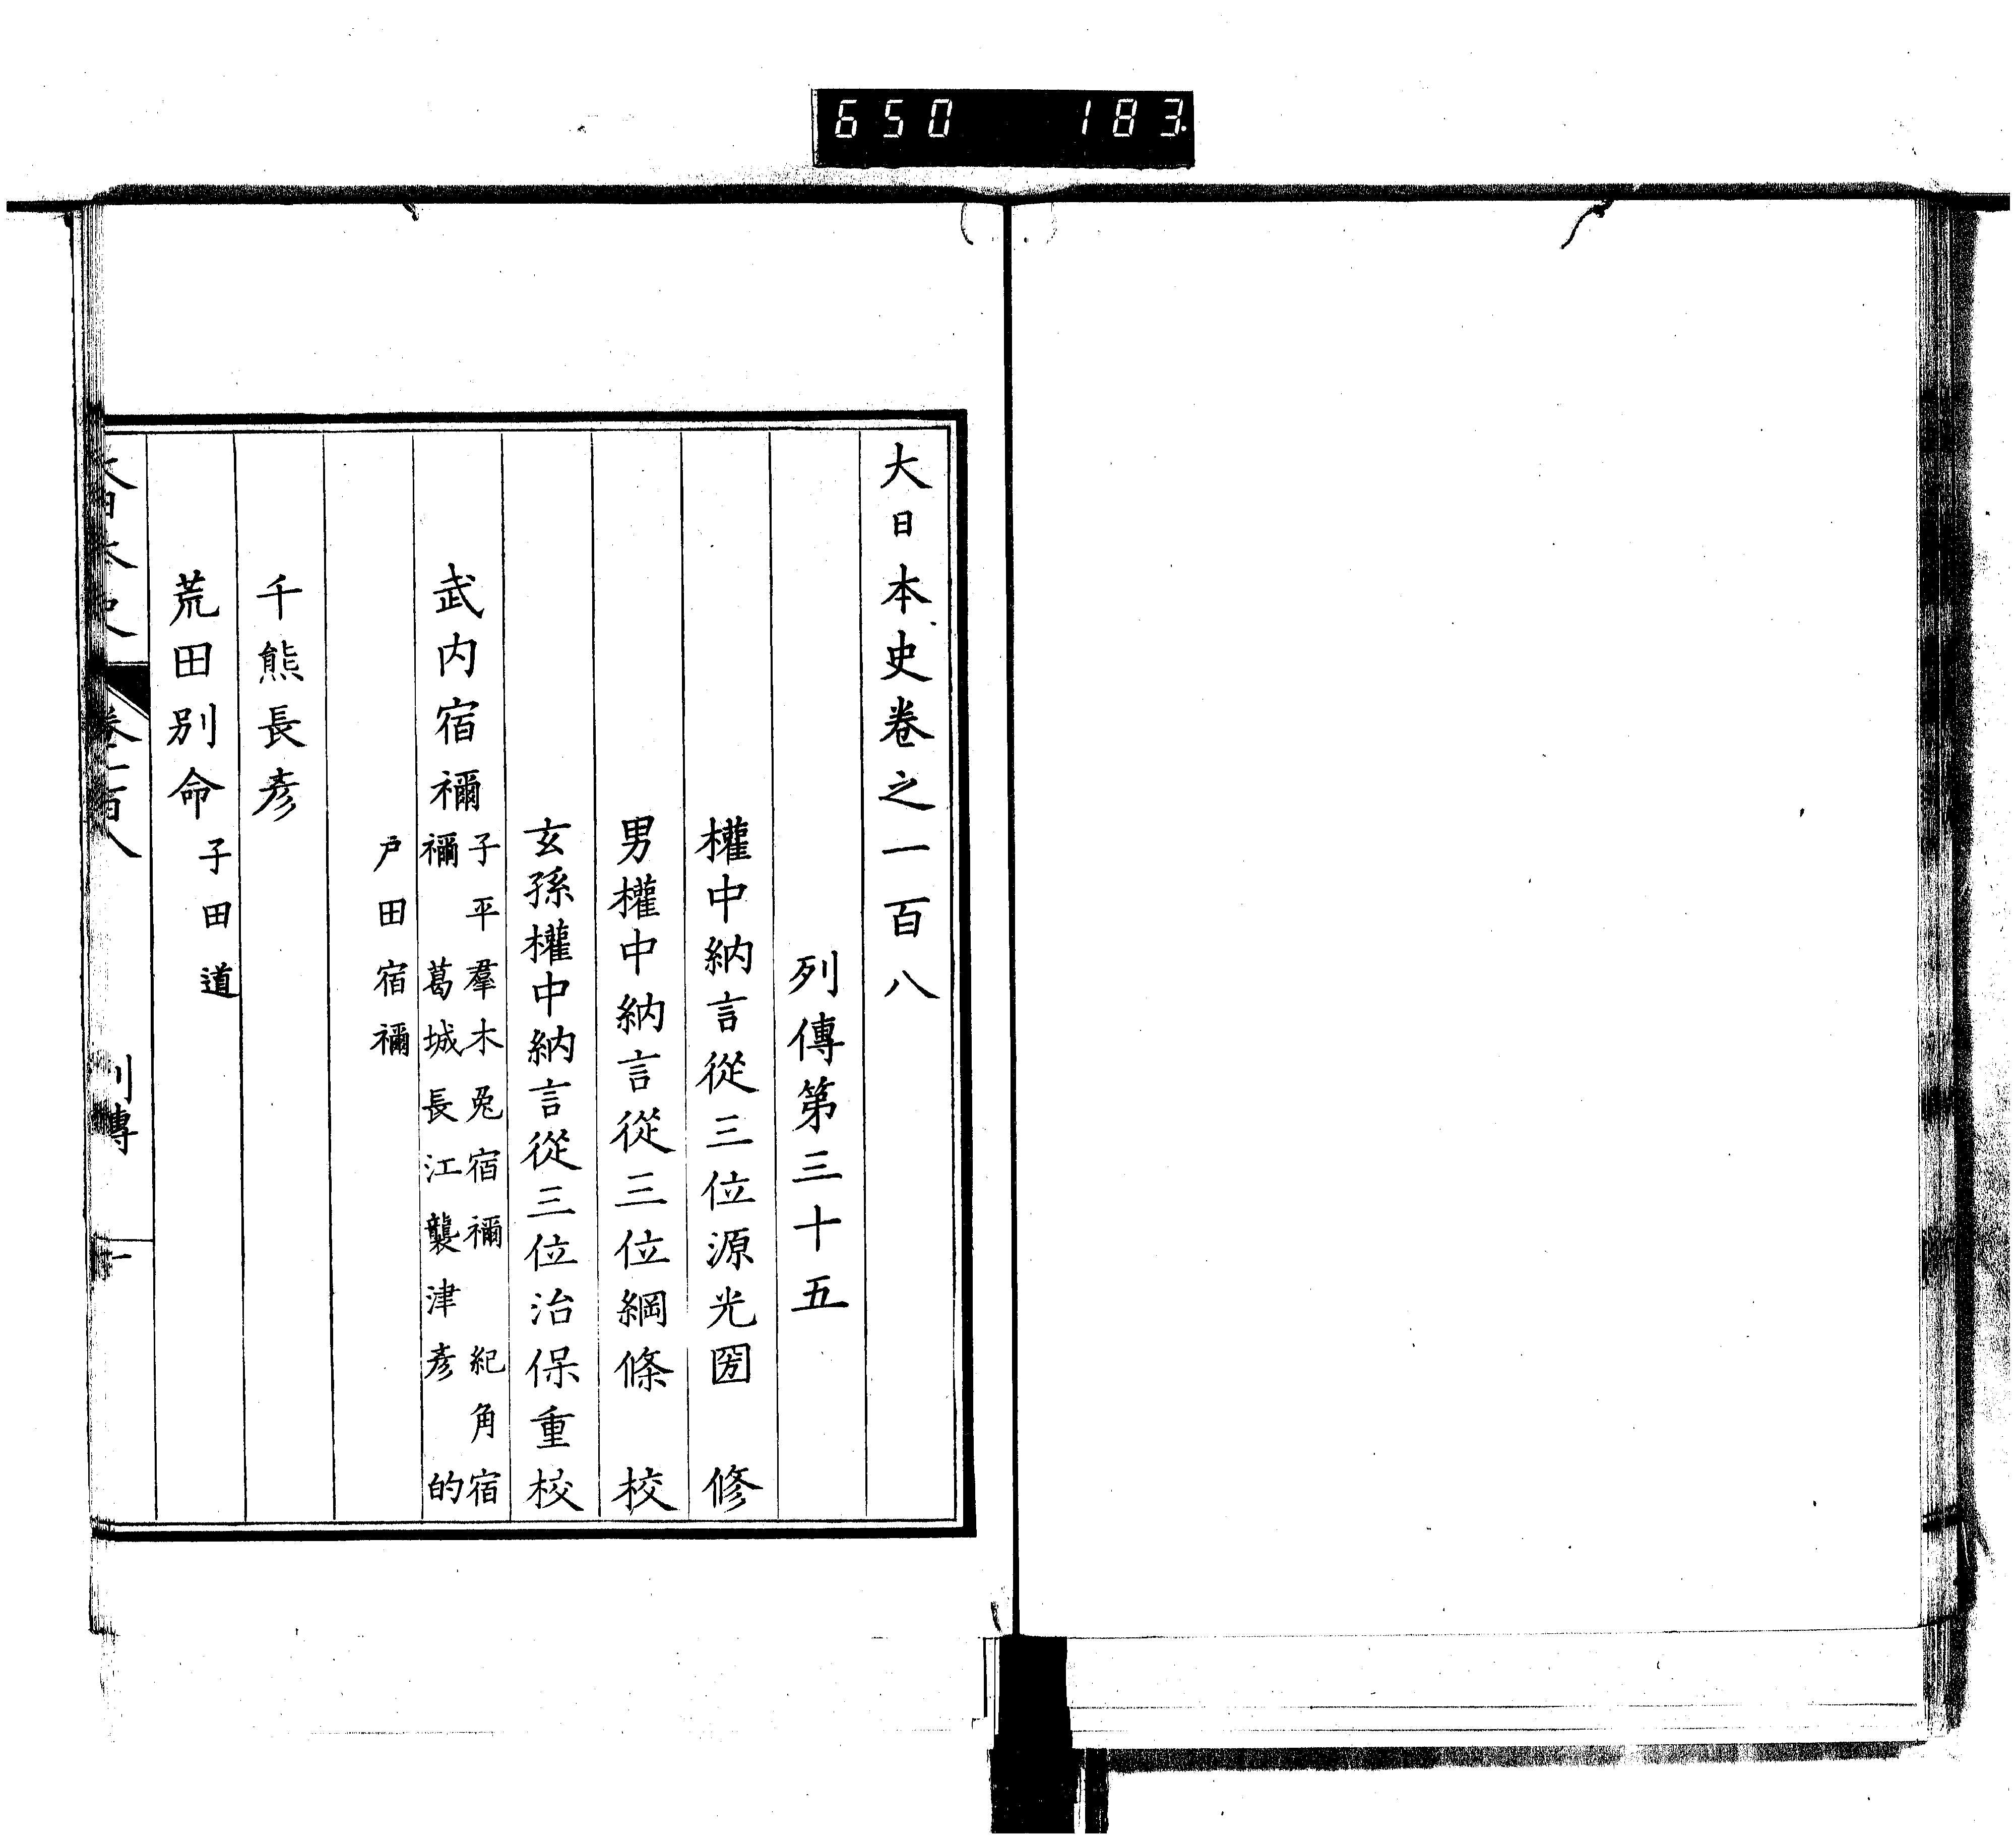 650 183
大日本史卷之一百八
列傳第三十五
權中納言從三位源光圀 修
男權中納言從三位綱條 校
玄孫權中納言從三位治保重校
武内宿禰
子平羣木兎宿禰 紀角宿
禰 葛城長江襲津彥 的
戸田宿禰
千熊長彥
荒田別命 子田道
大日本史 卷一百八 列傳 一